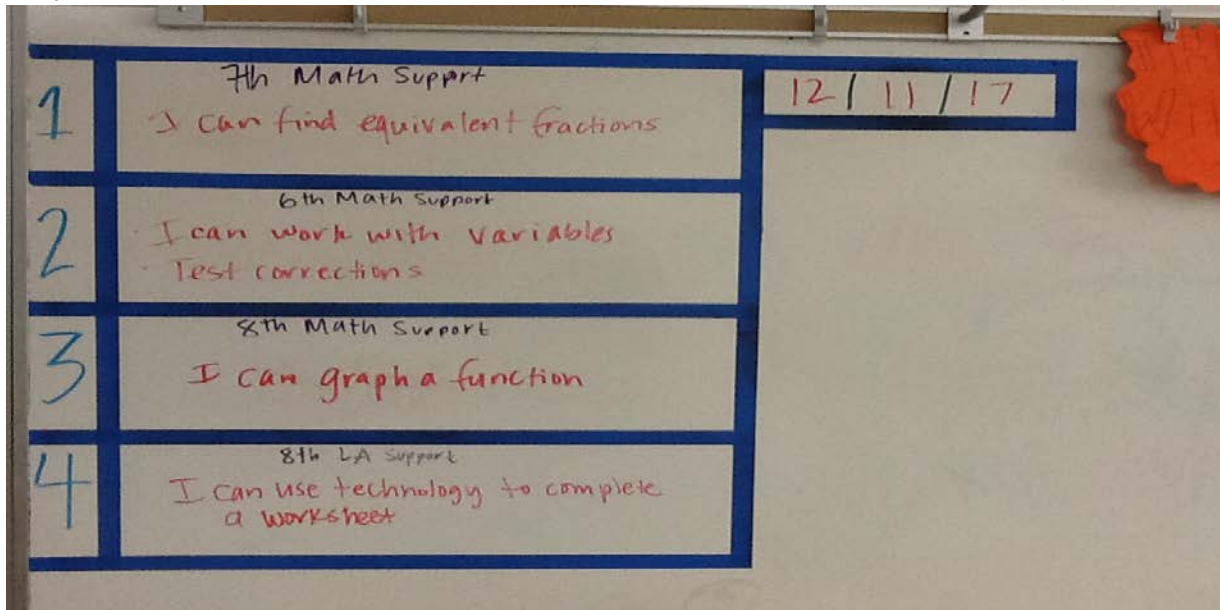 1
7th Math Support
I can find equivalent fractions
12/11/17
2
6th Math Support
· I can work with variables
· Test corrections
3
8th Math Support
I can graph a function
4
8th LA Support
I can use technology to complete
a worksheet